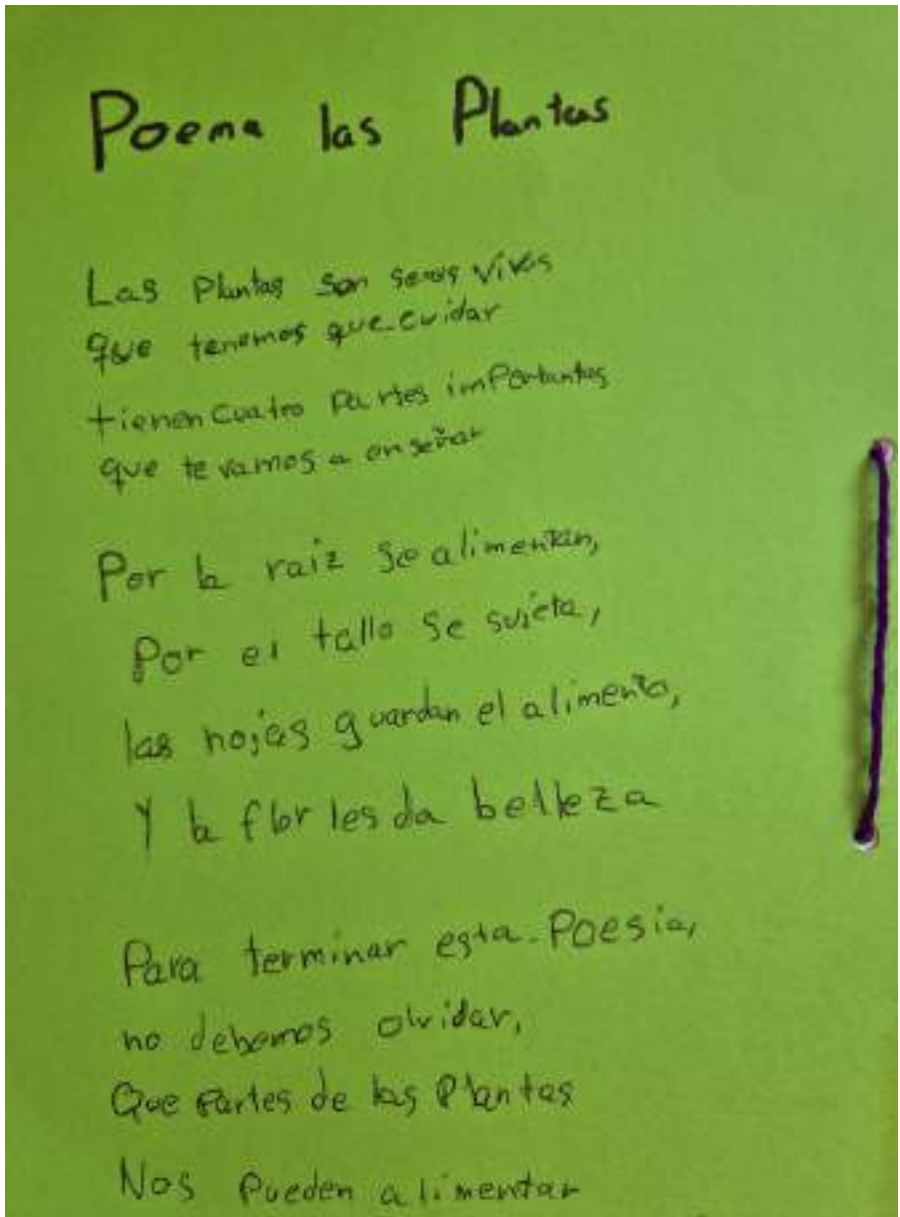 Poema las Plantas
Las Plantas son seres vivos
que tenemos que cuidar
tienen cuatro Partes imPortantes
que te vamos a enseñar
Por la raiz se alimentan,
Por el tallo se sujeta,
las hojas guardan el alimento,
Y la flor les da belleza
Para terminar esta Poesia,
no debemos olvidar,
Que Partes de las Plantas
Nos Pueden alimentar